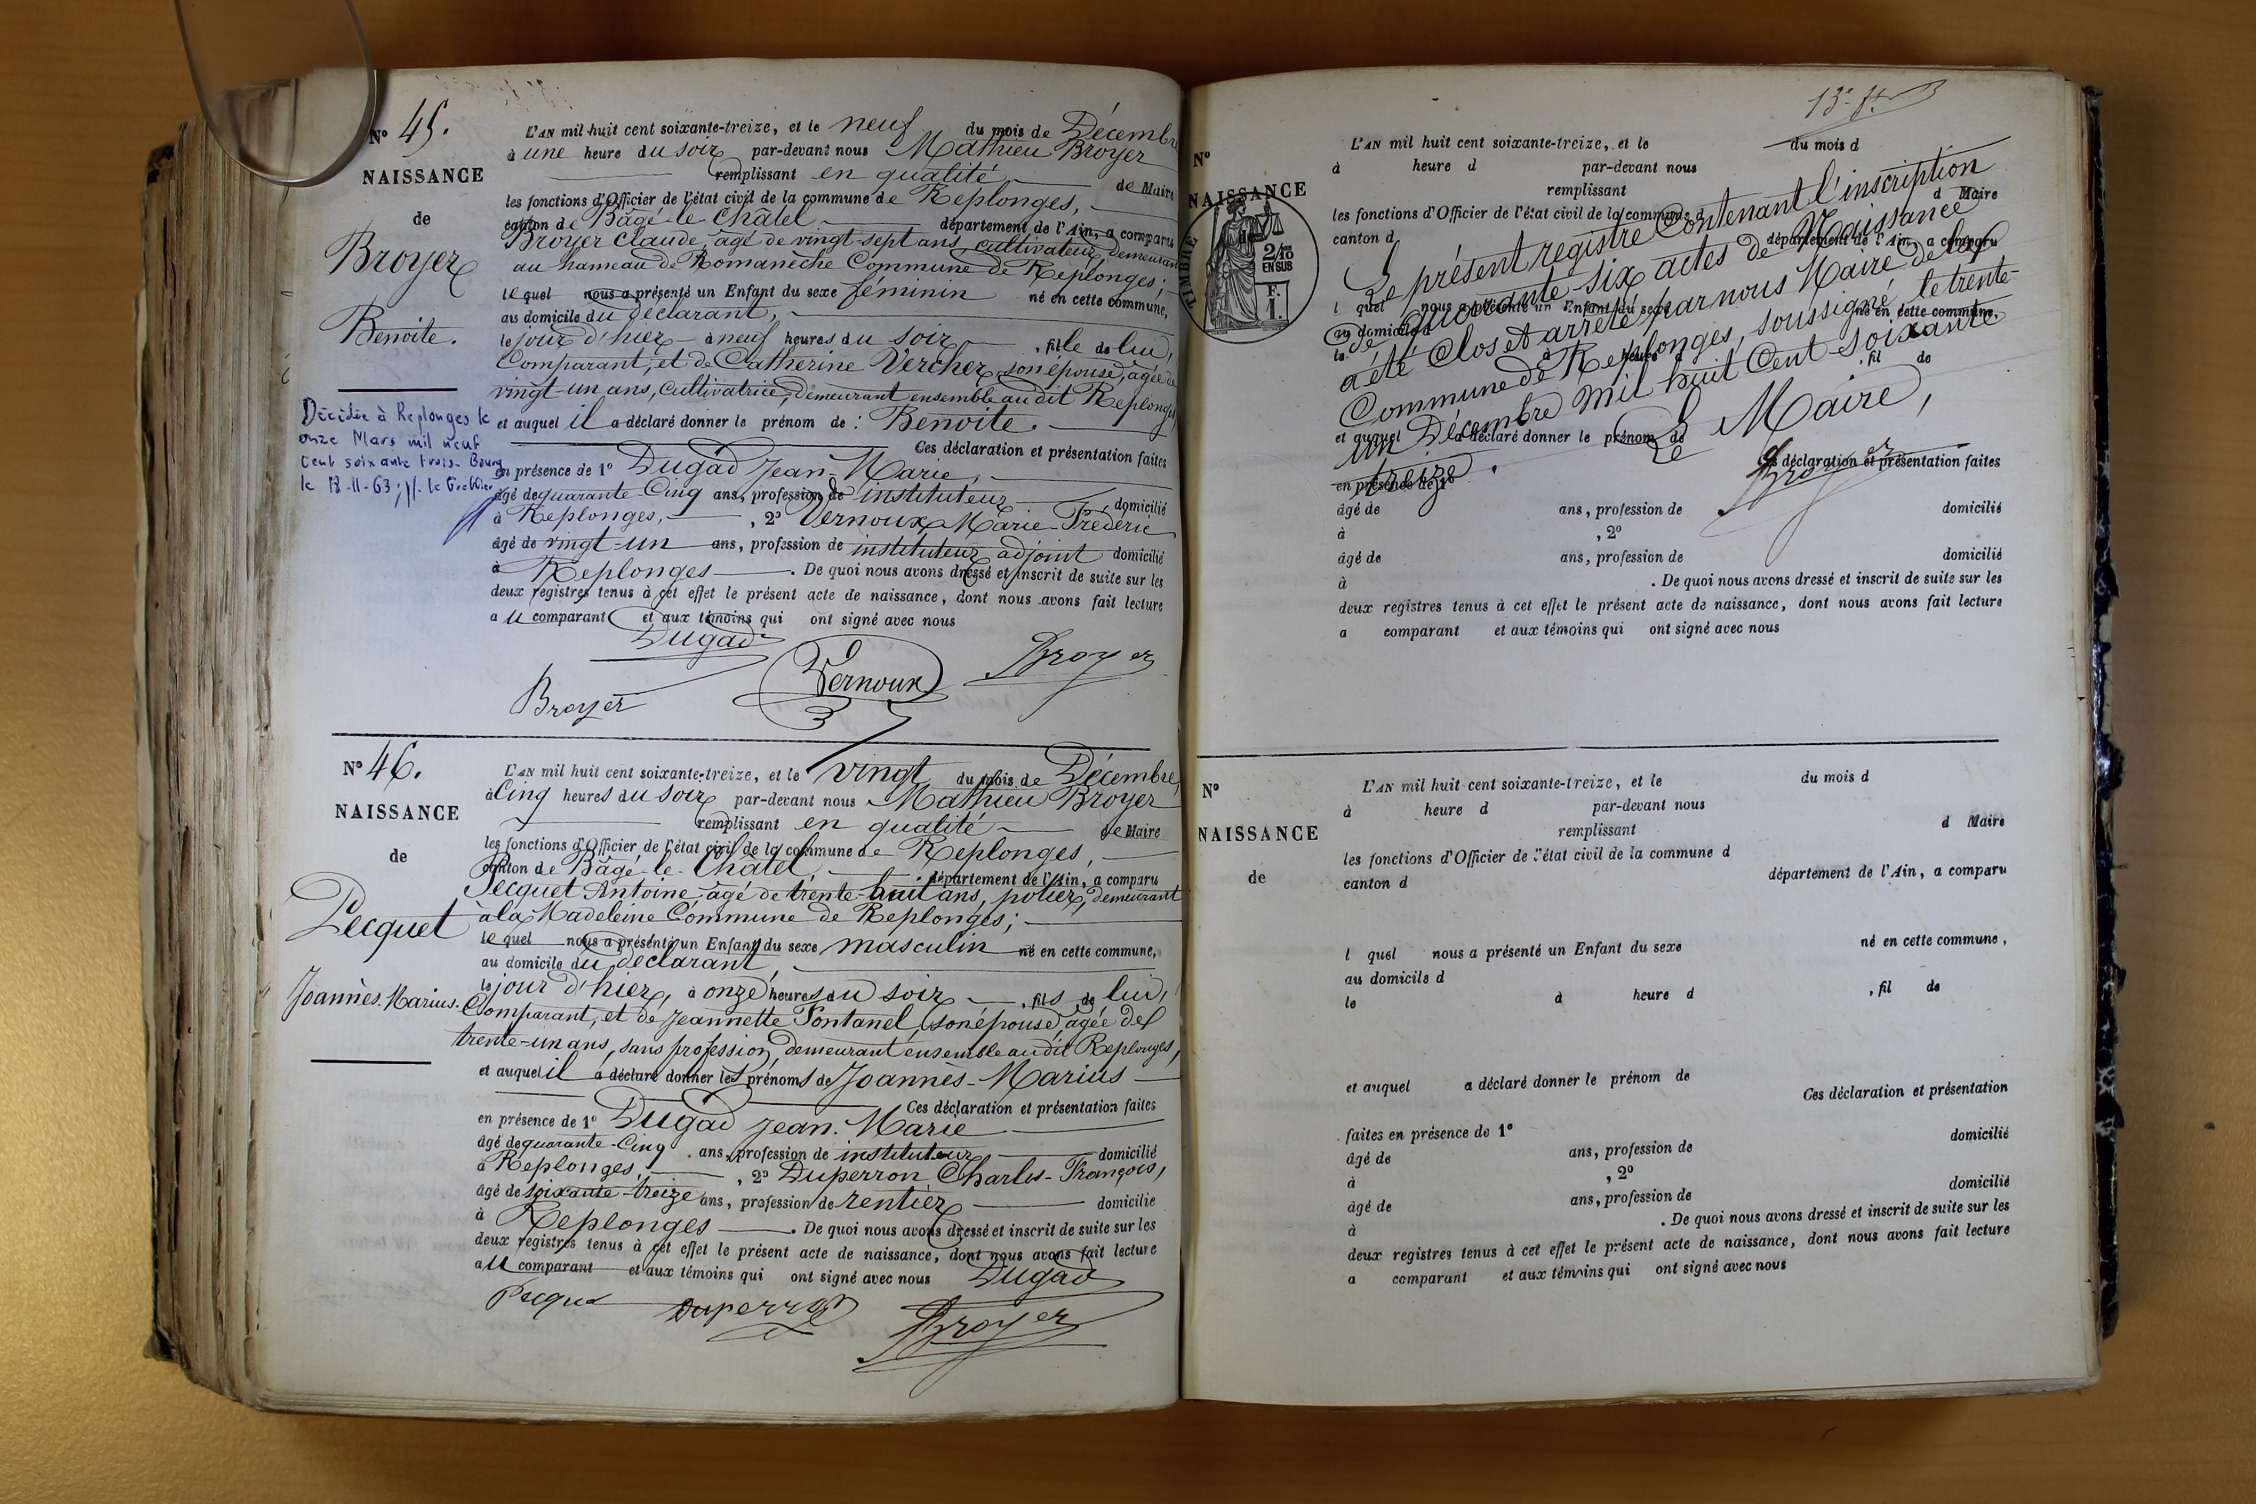 N° 45.
NAISSANCE
de
Broyer
Benoite.
Décédée à Replonges le
onze Mars mil neuf
cent soixante trois. Bourg
le 18-11-63; p/. le Greffier
L'AN mil huit cent soixante-treize, et le neuf du mois de Décembre
à une heure du soir par-devant nous Mathieu Broyer
remplissant en qualité de Maire
les fonctions d'Officier de l'état civil de la commune de Replonges,
canton de Bâgé-le-Châtel département de l'Ain, a comparu
Broyer Claude, âgé de vingt-sept ans, cultivateur, demeurant
au hameau de Romanèche Commune de Replonges;
lequel nous a présenté un Enfant du sexe féminin né en cette commune,
au domicile du déclarant,
le jour d'hier à neuf heures du soir, fille de lui,
Comparant, et de Catherine Vercher, son épouse, âgée de
vingt-un ans, cultivatrice, demeurant ensemble audit Replonges,
et auquel il a déclaré donner le prénom de : Benoite.
Ces déclaration et présentation faites
en présence de 1° Dugad Jean-Marie,
âgé de quarante-Cinq ans, profession de instituteur domicilié
à Replonges, , 2° Vernoux Marie-Fréderic
âgé de vingt-un ans, profession de instituteur adjoint domicilié
à Replonges. De quoi nous avons dressé et inscrit de suite sur les
deux registres tenus à cet effet le présent acte de naissance, dont nous avons fait lecture
au comparant et aux témoins qui ont signé avec nous
Dugad
Broyer Vernoux Broyer
N° 46.
NAISSANCE
de
Pecquet
Joannès-Marius.
L'AN mil huit cent soixante-treize, et le vingt du mois de Décembre,
à Cinq heures du soir par-devant nous Mathieu Broyer
remplissant en qualité de Maire
les fonctions d'Officier de l'état civil de la commune de Replonges,
canton de Bâgé-le-Châtel, département de l'Ain, a comparu
Pecquet Antoine, âgé de trente-huit ans, potier, demeurant
à la Madeleine Commune de Replonges;
lequel nous a présenté un Enfant du sexe masculin né en cette commune,
au domicile du déclarant,
le jour d'hier, à onze heures du soir, fils de lui,
Comparant, et de Jeannette Fontanel, son épouse, âgée de
trente-un ans, sans profession, demeurant ensemble audit Replonges,
et auquel il a déclaré donner les prénoms de Joannès-Marius
Ces déclaration et présentation faites
en présence de 1° Dugad Jean-Marie
âgé de quarante-Cinq ans, profession de instituteur domicilié
à Replonges, , 2° Duperron Charles-François,
âgé de soixante-treize ans, profession de rentier domicilié
à Replonges. De quoi nous avons dressé et inscrit de suite sur les
deux registres tenus à cet effet le présent acte de naissance, dont nous avons fait lecture
au comparant et aux témoins qui ont signé avec nous Dugad
Duperron
Broyer
N°
NAISSANCE
de
TIMBRE
2/10
EN SUS
F.
1.
L'AN mil huit cent soixante-treize, et le du mois d
à heure d par-devant nous
remplissant d Maire
les fonctions d'Officier de l'état civil de la commune d
canton d département de l'Ain, a comparu
l quel nous a présenté un Enfant du sexe né en cette commune,
au domicile d
le à heure d , fil de
et auquel a déclaré donner le prénom de
Ces déclaration et présentation faites
en présence de 1°
âgé de ans, profession de domicilié
à , 2°
âgé de ans, profession de domicilié
à . De quoi nous avons dressé et inscrit de suite sur les
deux registres tenus à cet effet le présent acte de naissance, dont nous avons fait lecture
a comparant et aux témoins qui ont signé avec nous
Le présent registre Contenant l'inscription
de quarante-six actes de Naissance
a été Clos et arrêté par nous Maire de la
Commune de Replonges, soussigné, le trente-
un Décembre mil huit Cent soixante
treize.
Le Maire,
Broyer
N°
NAISSANCE
de
L'AN mil huit cent soixante-treize, et le du mois d
à heure d par-devant nous
remplissant d Maire
les fonctions d'Officier de l'état civil de la commune d
canton d département de l'Ain, a comparu
l quel nous a présenté un Enfant du sexe né en cette commune,
au domicile d
le à heure d , fil de
et auquel a déclaré donner le prénom de
Ces déclaration et présentation
faites en présence de 1°
âgé de ans, profession de domicilié
à , 2°
âgé de ans, profession de domicilié
à . De quoi nous avons dressé et inscrit de suite sur les
deux registres tenus à cet effet le présent acte de naissance, dont nous avons fait lecture
a comparant et aux témoins qui ont signé avec nous